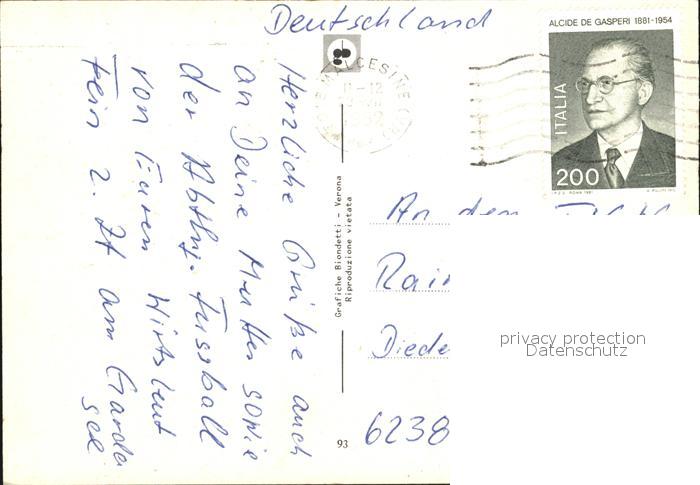 Deutschland
ALCIDE DE GASPERI 1881-1954
ITALIA
200
MALCESINE
11-12
1982
Herzliche Grüße auch
an Deine Mutter sowie
der Abtlg. Fussball
von Euren Wirtsleut
z. Zt am Garda
see
Grafiche Biondetti - Verona
Riproduzione vietata
93
An den
Rain
Diede
6238
privacy protection
Datenschutz